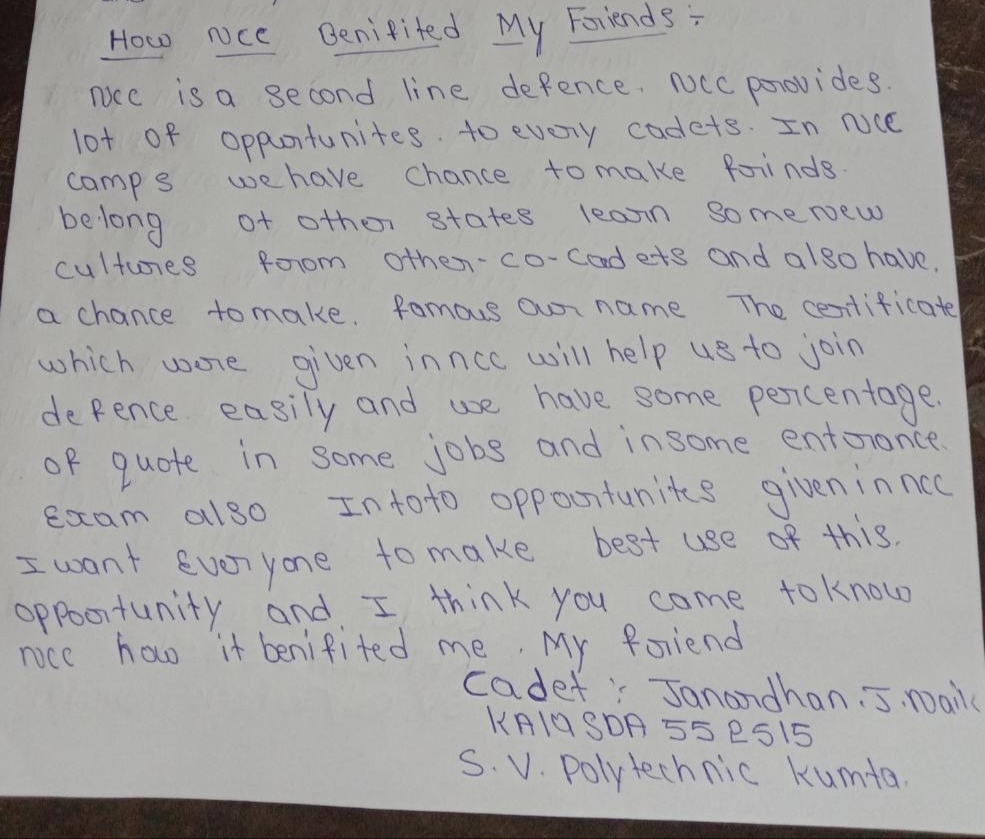 How NCC Benifited My Friends :-
NCC is a second line defence. NCC provides.
lot of opportunites. to every cadets. In NCC
camps we have chance to make frinds.
belong of other states learn some new
cultures from other-co-cadets and also have.
a chance to make. famous our name The certificate
which were given in ncc will help us to join
defence easily and we have some percentage.
of quote in some jobs and in some entrance.
Exam also In toto opportunites given in ncc
I want Everyone to make best use of this.
opportunity and. I think you came to know
NCC how it benifited me. My friend
Cadet : Janardhan. J. Naik
KA19SDA 552515
S. V. Polytechnic Kumta.